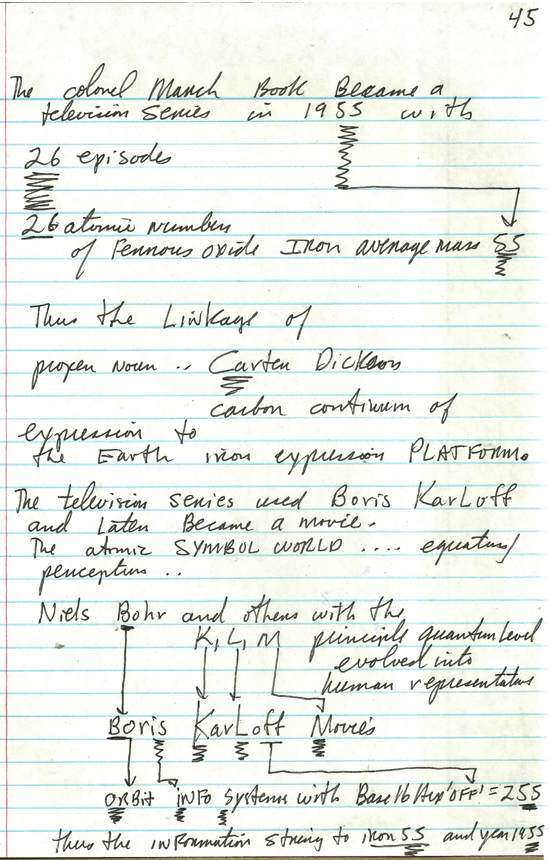 45
The colonel March Book Became a
television series in 1955 with
26 episodes
26 atomic numbers
of Ferrous oxide Iron average mass 55
Thus the Linkage of
proper noun .. Carter Dickson
carbon continuum of
expression to
the Earth iron expression PLATFORM.
The television series used Boris KarLoff
and Later Became a movie.
The atomic SYMBOL WORLD .... equators/
perceptors ..
Niels Bohr and others with the
K, L, M principle quantum Level
evolved into
human representative
Boris KarLoff Movies
ORBit INFO systems with Base 16 Hex 'OFF' = 255
thus the information string to iron 55 and year 1955